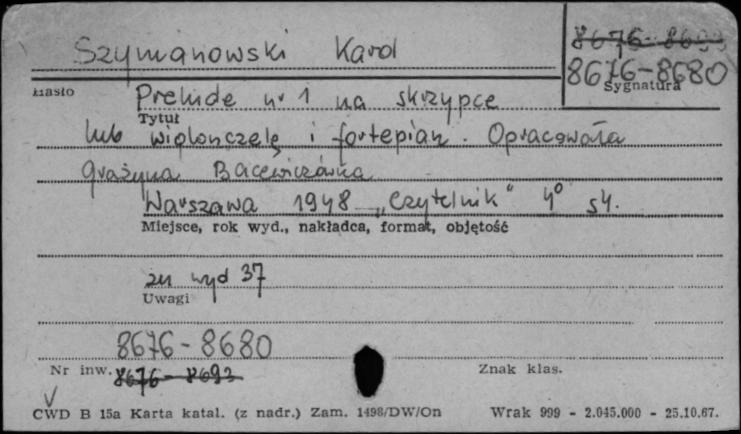 Szymanowski Karol
8676-8693
8676-8680
Hasło
Sygnatura
Prelude nr 1 na skrzypce
Tytuł
lub wiolonczelę i fortepian. Opracowała
Grażyna Bacewiczówna
Warszawa 1948 „Czytelnik" 4° s4.
Miejsce, rok wyd., nakładca, format, objętość
zn wyd 37
Uwagi
8676-8680
Nr inw. 8676-8693
Znak klas.
CWD B 15a Karta katal. (z nadr.) Zam. 1498/DW/On Wrak 999 - 2.045.000 - 25.10.67.